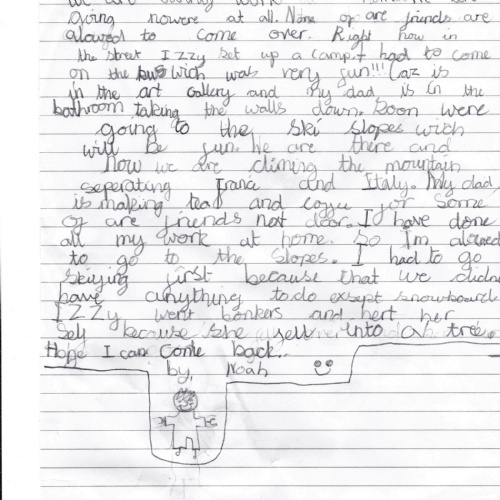 going nowere at all. None of are friends are
alowed to come over. Right now in
the street Izzy set up a camp. I had to come
on the bus wich was very fun!!! Caz is
in the art Gallery and my dad is in the
bathroom taking the walls down. Soon were
going to the ski slopes wich
will be fun. he are there and
Now we are climing the mountain
seperating Franc and Italy. My dad
is making tea and coffee for some
of are friends not door. I have done
all my work at home. So I'm alowed
to go to the slopes. I had to go
skiying first because that we didn
have anything to do exsept snowboarde
IZZy went bonkers and hert her
self because she fell into a tree.
Hope I can come back..
by, Noah